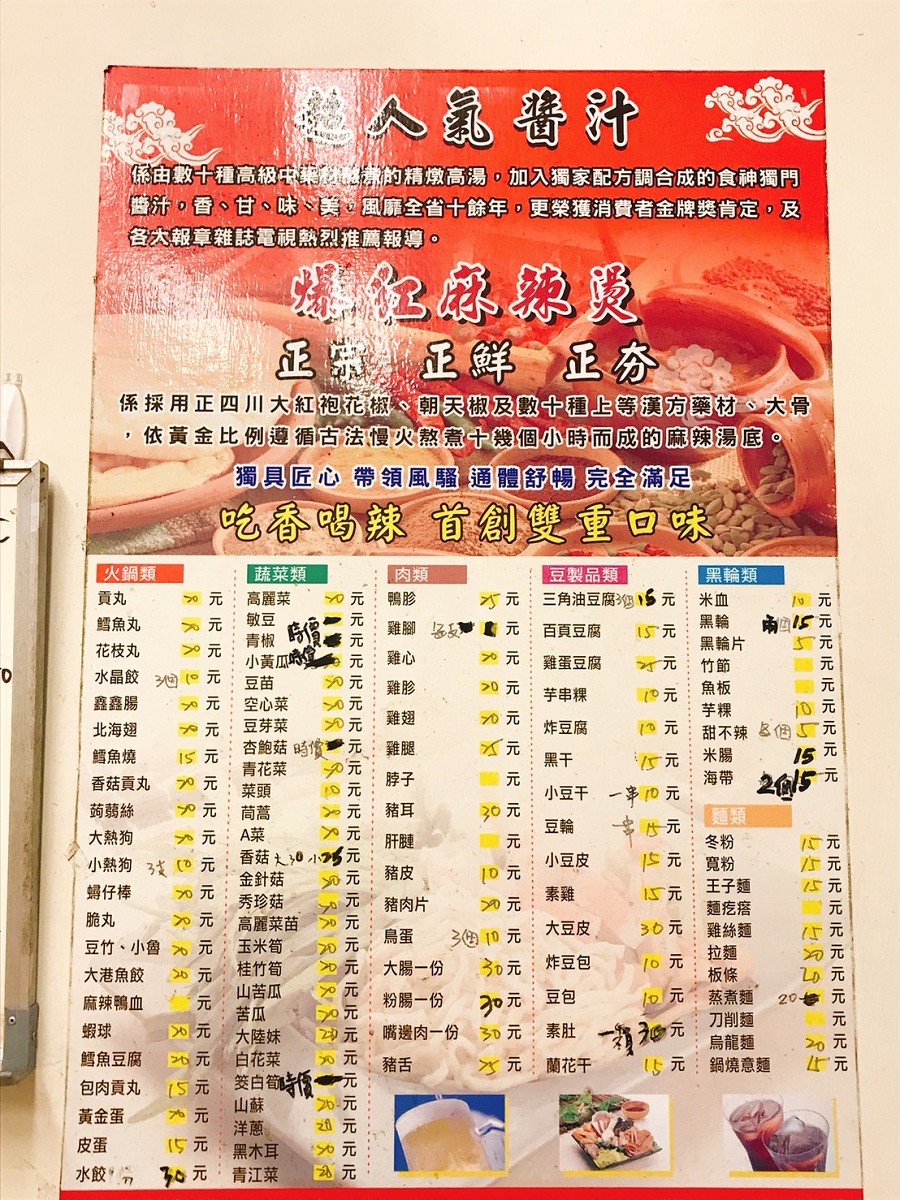 超人氣醬汁
係由數十種高級中藥材熬煮的精燉高湯，加入獨家配方調合成的食神獨門
醬汁，香、甘、味、美，風靡全省十餘年，更榮獲消費者金牌獎肯定，及
各大報章雜誌電視熱烈推薦報導。
爆紅麻辣燙
正宗 正鮮 正夯
係採用正四川大紅袍花椒、朝天椒及數十種上等漢方藥材、大骨
，依黃金比例遵循古法慢火熬煮十幾個小時而成的麻辣湯底。
獨具匠心 帶領風騷 通體舒暢 完全滿足
吃香喝辣 首創雙重口味
火鍋類
貢丸 元
鱈魚丸 元
花枝丸 元
水晶餃 3個 10 元
鑫鑫腸 元
北海翅 元
鱈魚燒 15 元
香菇貢丸 元
蒟蒻絲 元
大熱狗 元
小熱狗 3支 10 元
蟳仔棒 元
脆丸 元
豆竹、小魯 元
大港魚餃 20 元
麻辣鴨血 元
蝦球 元
鱈魚豆腐 20 元
包肉貢丸 15 元
黃金蛋 元
皮蛋 15 元
水餃 30 元
蔬菜類
高麗菜 元
敏豆 元
青椒 時價 元
小黃瓜 時價 元
豆苗 元
空心菜 元
豆芽菜 元
杏鮑菇 時價 元
青花菜 元
菜頭 元
茼蒿 元
A菜 元
香菇 大30 小25 元
金針菇 元
秀珍菇 元
高麗菜苗 元
玉米筍 元
桂竹筍 元
山苦瓜 元
苦瓜 元
大陸妹 元
白花菜 元
筊白筍 時價 元
山蘇 20 元
洋蔥 20 元
黑木耳 元
青江菜 20 元
肉類
鴨胗 元
雞腳 元
雞心 元
雞胗 20 元
雞翅 元
雞腿 元
脖子 元
豬耳 30 元
肝腱 元
豬皮 10 元
豬肉片 元
鳥蛋 3個 10 元
大腸一份 30 元
粉腸一份 30 元
嘴邊肉一份 30 元
豬舌 元
豆製品類
三角油豆腐 3個 15 元
百頁豆腐 15 元
雞蛋豆腐 25 元
芋串粿 10 元
炸豆腐 10 元
黑干 15 元
小豆干 一串 10 元
豆輪 一串 15 元
小豆皮 15 元
素雞 15 元
大豆皮 30 元
炸豆包 10 元
豆包 10 元
素肚 一顆 30 元
蘭花干 15 元
黑輪類
米血 10 元
黑輪 兩個 15 元
黑輪片 5 元
竹節 元
魚板 元
芋粿 10 元
甜不辣 個 5 元
米腸 15 元
海帶 2個 15 元
麵類
冬粉 15 元
寬粉 15 元
王子麵 15 元
麵疙瘩 元
雞絲麵 15 元
拉麵 20 元
板條 20 元
蒸煮麵 20 元
刀削麵 元
烏龍麵 20 元
鍋燒意麵 15 元